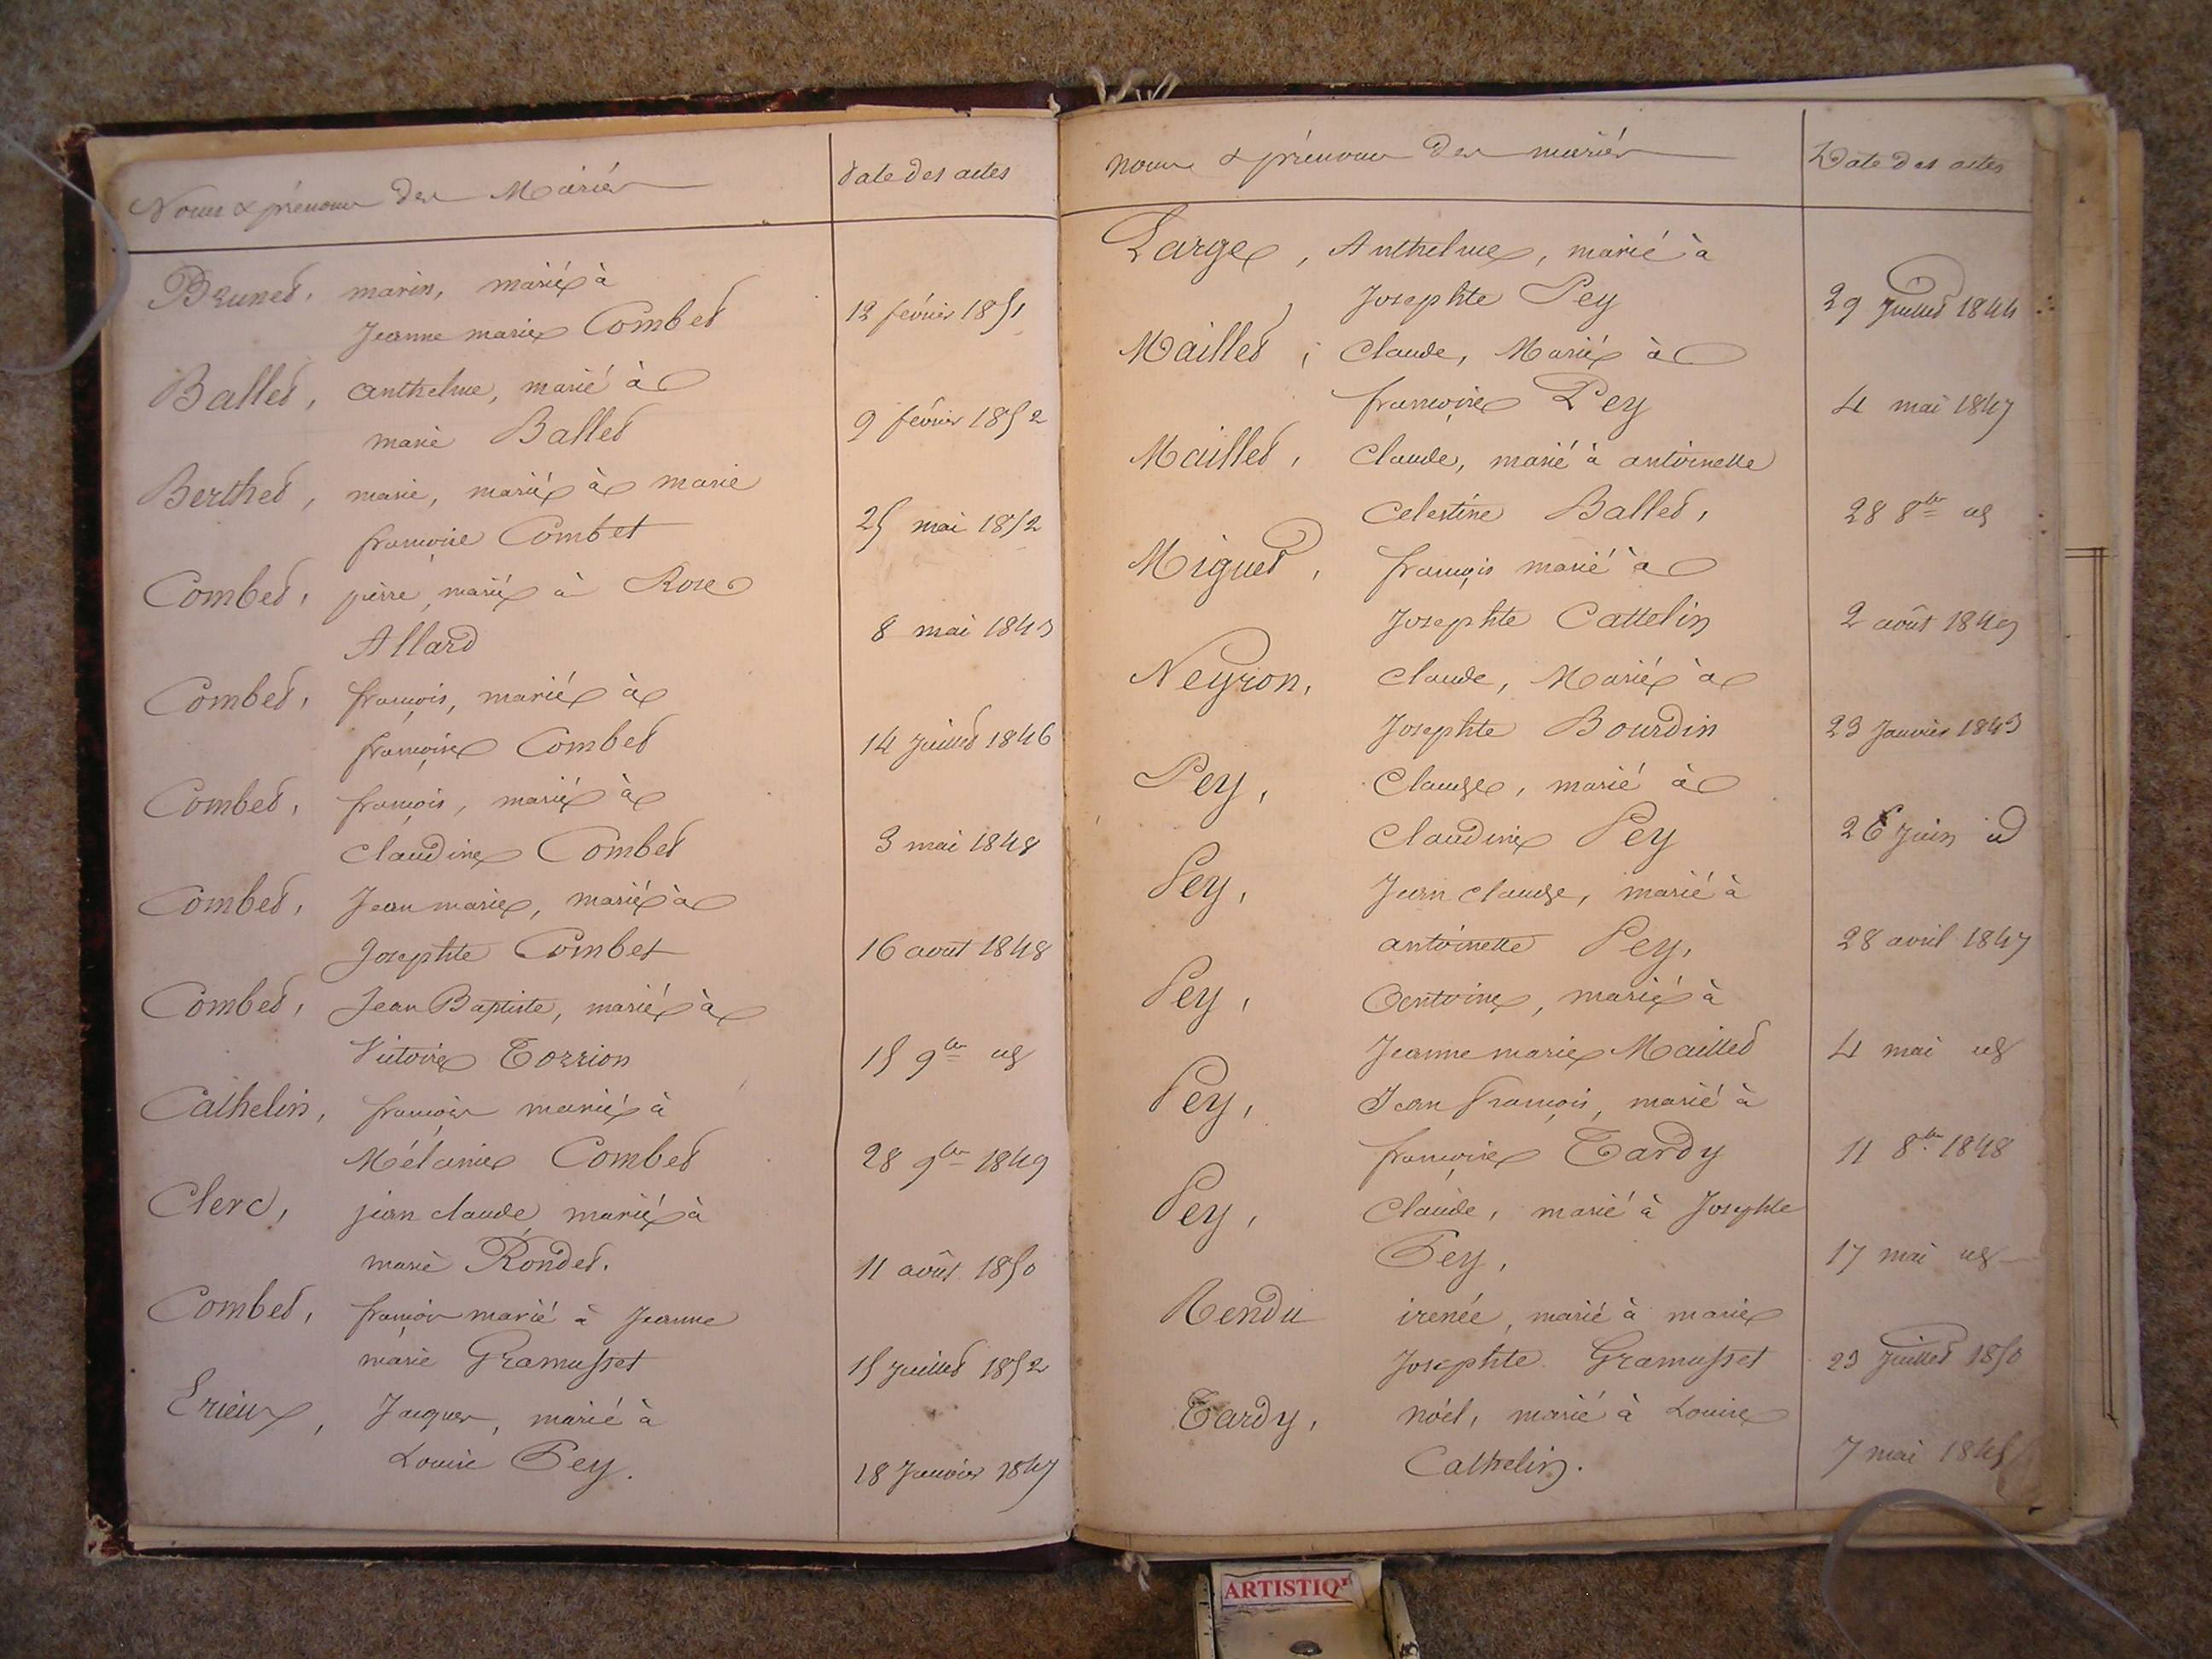 Noms & prénoms des Mariés
date des actes
Brunet, marin, marié à
Jeanne marie Combet
12 février 1851
Ballet, anthelme, marié à
marie Ballet
9 février 1852
Berthet, marie, marié à marie
françoise Combet
25 mai 1852
Combet, pierre, marié à Rose
Allard
8 mai 1843
Combet, françois, marié à
françoise Combet
14 Juillet 1846
Combet, françois, marié à
Claudine Combet
3 mai 1848
Combet, Jean marie, marié à
Josephte Combet
16 aout 1848
Combet, Jean Baptiste, marié à
Victoire Torrion
15 9bre id
Cathelin, françois marié à
Mélanie Combet
28 9bre 1849
Clerc, jean claude, marié à
marie Rondet.
11 août 1850
Combet, françois marié à Jeanne
marie Gramusset
15 Juillet 1852
Erieux, Jacques, marié à
Louise Pey.
18 Janvier 1847
noms & prénoms des mariés
Date des actes
Large, Anthelme, marié à
Josephte Pey
29 Juillet 1844
Maillet, Claude, Marié à
françoise Pey
4 mai 1847
Maillet, Claude, marié à antoinette
Celestine Ballet,
28 8bre id
Miguet, françois marié à
Josephte Cattelin
2 août 1849
Neyron, Claude, Marié à
Josephte Bourdin
23 Janvier 1843
Pey, Claude, marié à
Claudine Pey
26 Juin id
Pey, Jean claude, marié à
antoinette Pey,
28 avril 1847
Pey, Antoine, marié à
Jeanne marie Maillet
4 mai id
Pey, Jean François, marié à
françoise Tardy
11 8bre 1848
Pey, Claude, marié à Josephte
Pey,
17 mai id
Rendu irenée, marié à marie
Josephte Gramusset
23 Juillet 1850
Tardy, noël, marié à Louise
Cathelin.
7 mai 1845
ARTISTIQ